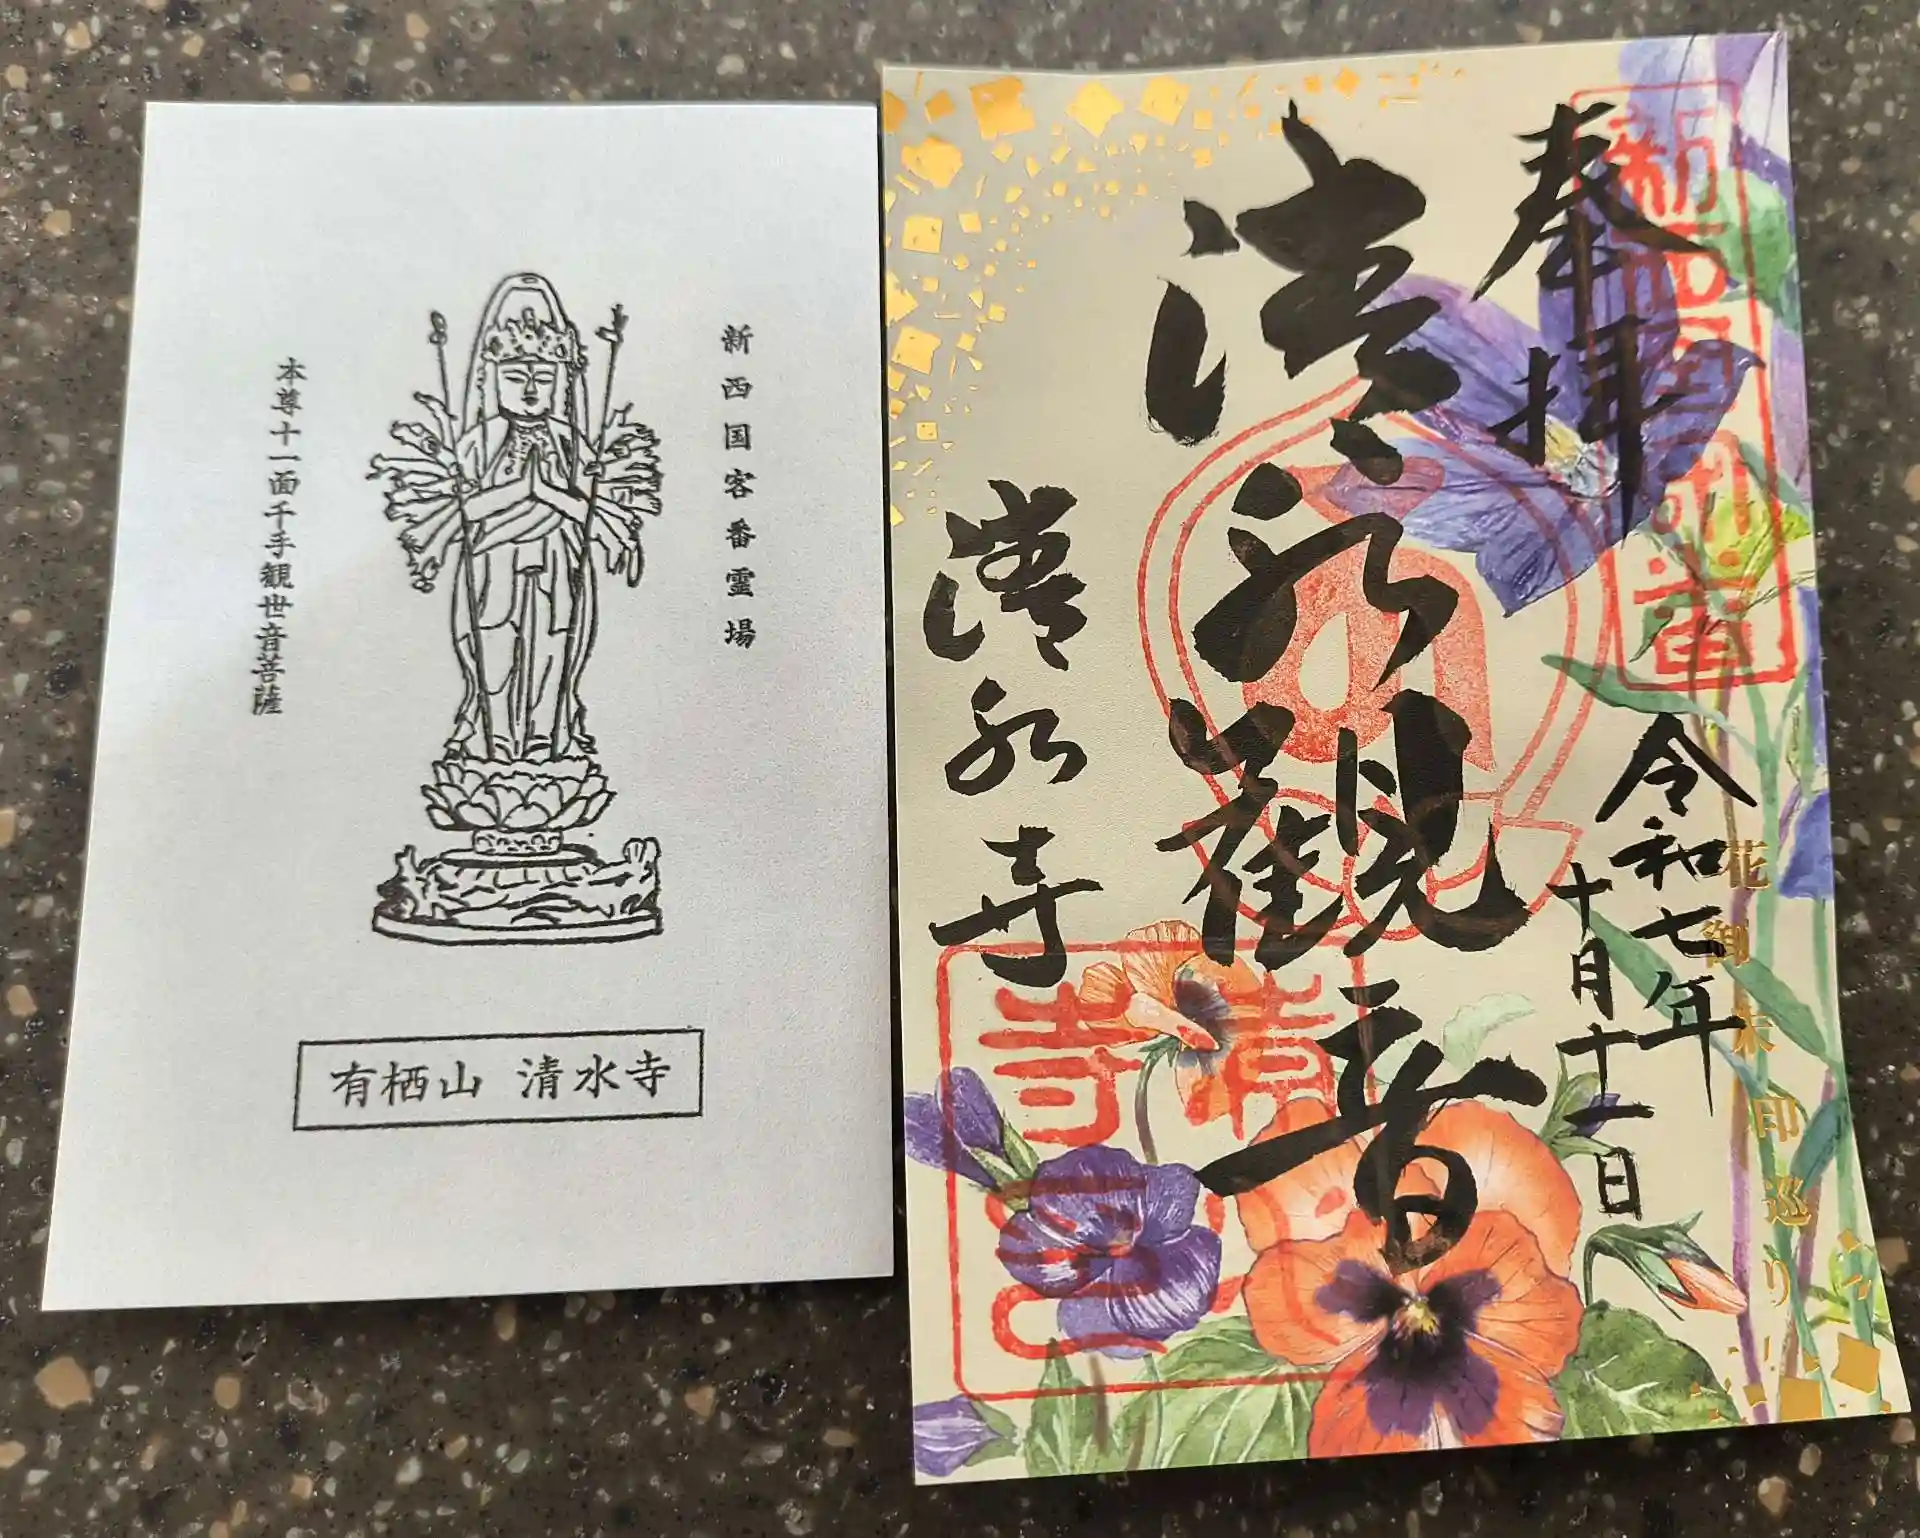 新西国客番霊場
本尊十一面千手観世音菩薩
有栖山 清水寺
奉拝
新西国客番
令和七年
十月十一日
花御朱印巡り
清水観音
清水寺
清水寺印